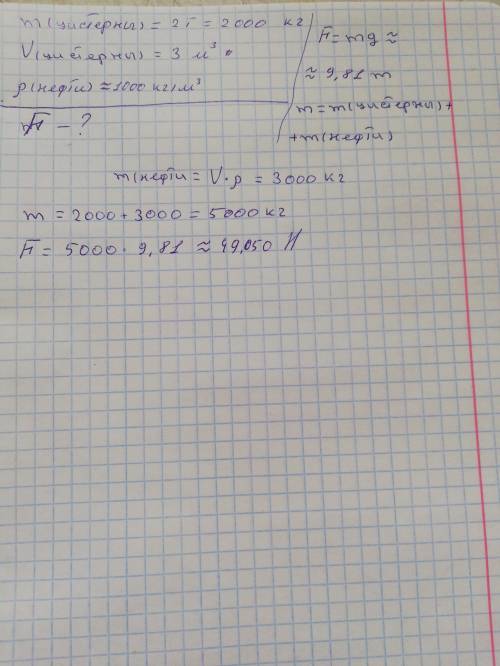 m(цистерны) = 2т = 2000 кг
V(цистерны) = 3 м³
ρ(нефти) ≈ 1000 кг/м³
F - ?
F = mg ≈
≈ 9,81 m
m = m(цистерны) +
+ m(нефти)
m(нефти = V·ρ = 3000 кг
m = 2000 + 3000 = 5000 кг
F = 5000 · 9,81 ≈ 49,050 Н